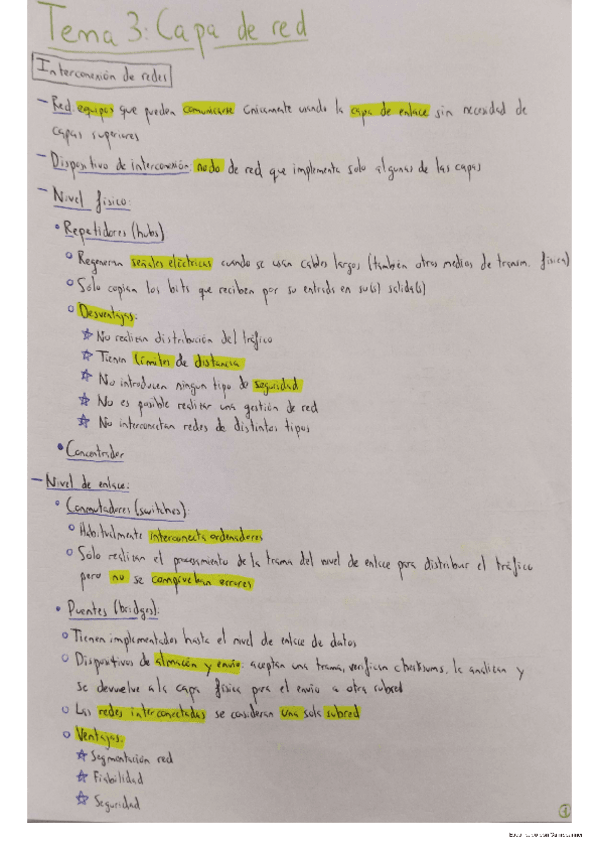 Tema 3: Capa de red
Interconexión de redes
- Red: equipos que pueden comunicarse únicamente usando la capa de enlace sin necesidad de
capas superiores
- Dispositivo de interconexión: nodo de red que implementa solo algunas de las capas
- Nivel físico:
• Repetidores (hubs)
○ Regeneran señales eléctricas cuando se usan cables largos (también otros medios de transm. física)
○ Solo copian los bits que reciben por su entrada en su(s) salida(s)
○ Desventajas:
☆ No realizan distribución del tráfico
☆ Tienen límites de distancia
☆ No introducen ningun tipo de seguridad
☆ No es posible realizar una gestión de red
☆ No interconectan redes de distintos tipos
• Concentrador
- Nivel de enlace:
• Conmutadores (switches):
○ Habitualmente interconecta ordenadores
○ Solo realizan el procesamiento de la trama del nivel de enlace para distribuir el tráfico
pero no se comprueban errores
• Puentes (bridges):
○ Tienen implementados hasta el nivel de enlace de datos
○ Dispositivos de almacén y envío: aceptan una trama, verifican checksums, la analizan y
se devuelve a la capa física para el envío a otra subred
○ Las redes interconectadas se consideran una sola subred
○ Ventajas:
☆ Segmentación red
☆ Fiabilidad
☆ Seguridad
1